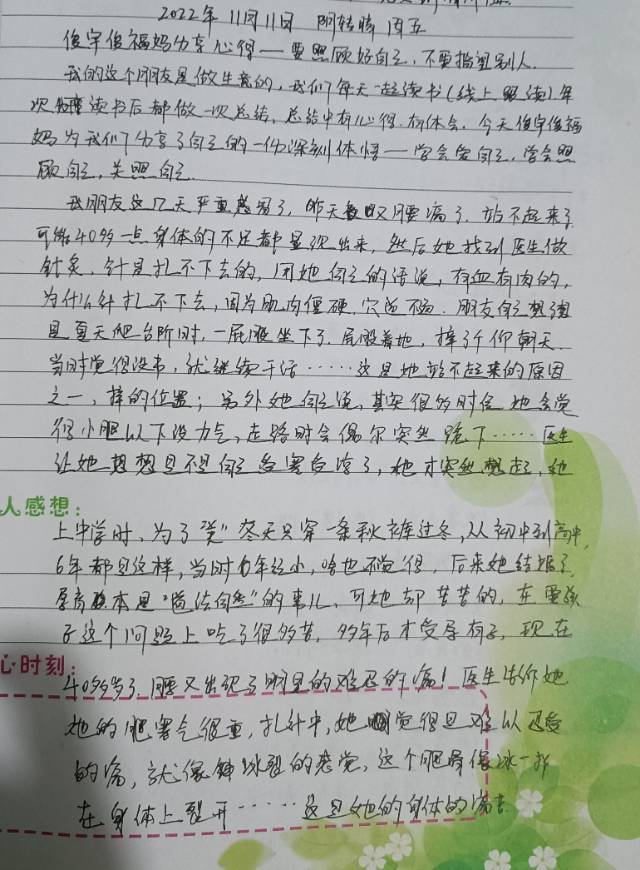 2022年11月11日 阴转晴 周五
俊宇俊福妈分享心得——要照顾好自己,不要指望别人.
我的这个朋友是做生意的,我们每天一起读书(线上 读)每
次 读书后都做一次总结,总结中有心得,有体会.今天俊宇俊福
妈为我们分享了自己的一份深刻体悟——学会爱自己.学会照
顾自己,关照自己.
我朋友这几天严重感冒了,昨天 又腰痛了.站不起来了
可能40多一点身体的不足都显现出来,然后她找到医生做
针灸.针是扎不下去的,用她自己的话说,有血有肉的,
为什么针扎不下去,因为肌肉僵硬.穴道不通.朋友自己想想
是夏天爬台阶时,一屁股坐下了.屁股着地,摔了个仰朝天.
当时觉得没事,就继续干活……这是她站不起来的原因
之一,摔的位置;另外她自己说,其实很多时候她会觉
得小腿以下没力气,走路时会偶尔突然跪下……医生
让她想想是不是自己 着凉了,她才突然想起,她
人感想:
上中学时、为了“美”冬天只穿一条秋裤过冬,从初中到高中,
6年都是这样,当时 年纪小,啥也不觉得,后来她结婚了.
孕育 本是“道法自然”的事儿、可她却苦苦的,在要孩
子这个问题上吃了很多苦,多年后才受孕有子,现在
心时刻:
40多岁了.腰又出现了 的难忍的痛!医生告诉她
她的腿寒气很重,扎针中,她 觉得是难以忍受
的痛,就像 冰裂的感觉,这个腿骨像冰一样
在身体上裂开……这是她的身体的痛苦.